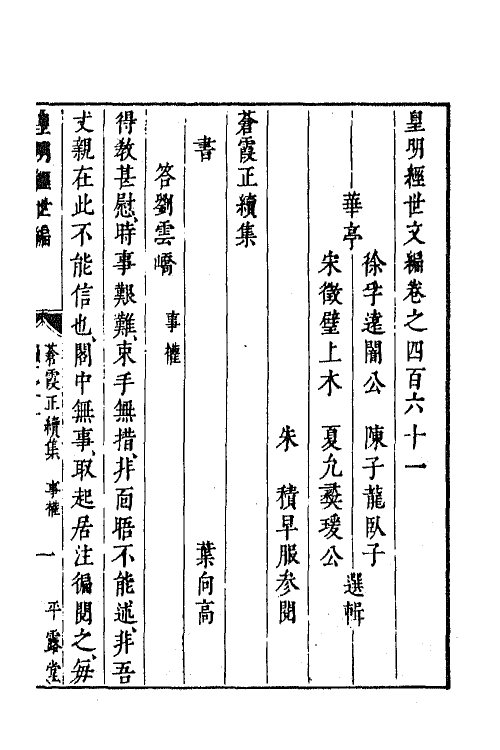 皇明經世文編卷之四百六十一
華亭
徐孚遠闇公 陳子龍臥子
宋徵璧上木 夏允彝瑗公
選輯
朱 積早服參閱
蒼霞正續集
書 葉向高
答劉雲嶠 事權
得教甚慰、時事艱難、束手無措、非面晤不能述、非吾
丈親在此不能信也、閣中無事、取起居注徧閱之、每
皇明經世編
蒼霞正續集 事權 一 平露堂